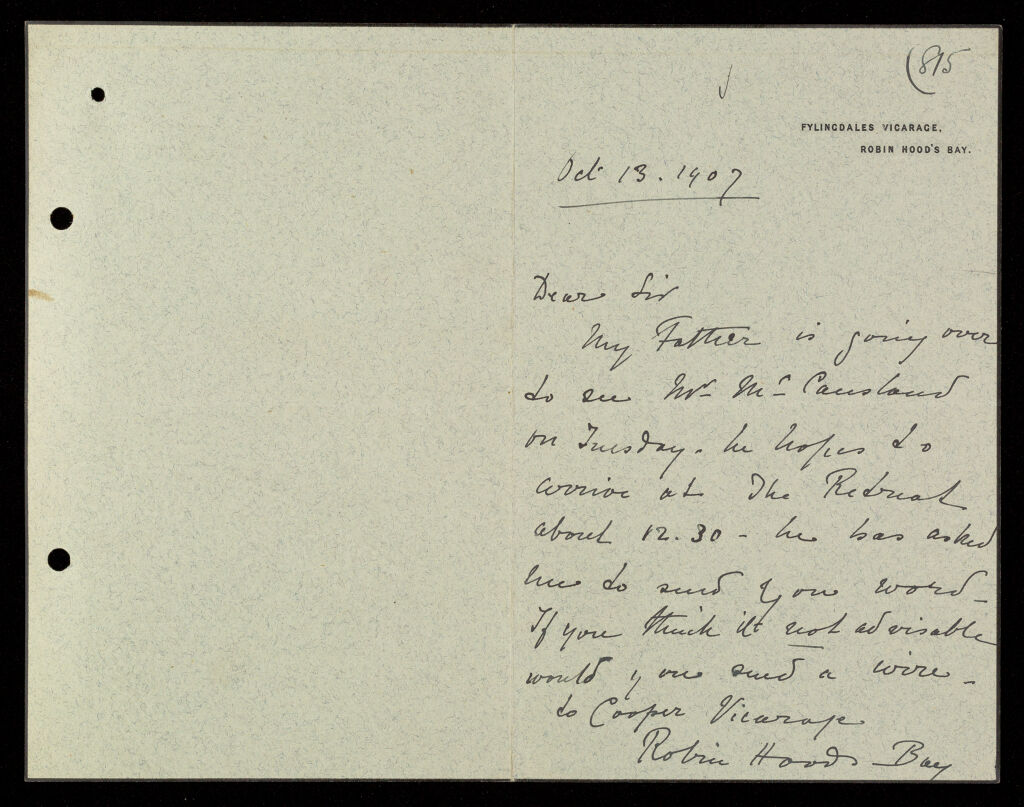 (815
FYLINGDALES VICARAGE,
ROBIN HOOD'S BAY.
Oct 13. 1907
Dear Sir
My Father is going over
to see Mr. Mc Causland
on Tuesday. he hopes to
arrive at The Retreat
about 12.30 - he has asked
me to send you word -
If you think it not advisable
would you send a wire -
to Cooper Vicarage
Robin Hoods Bay